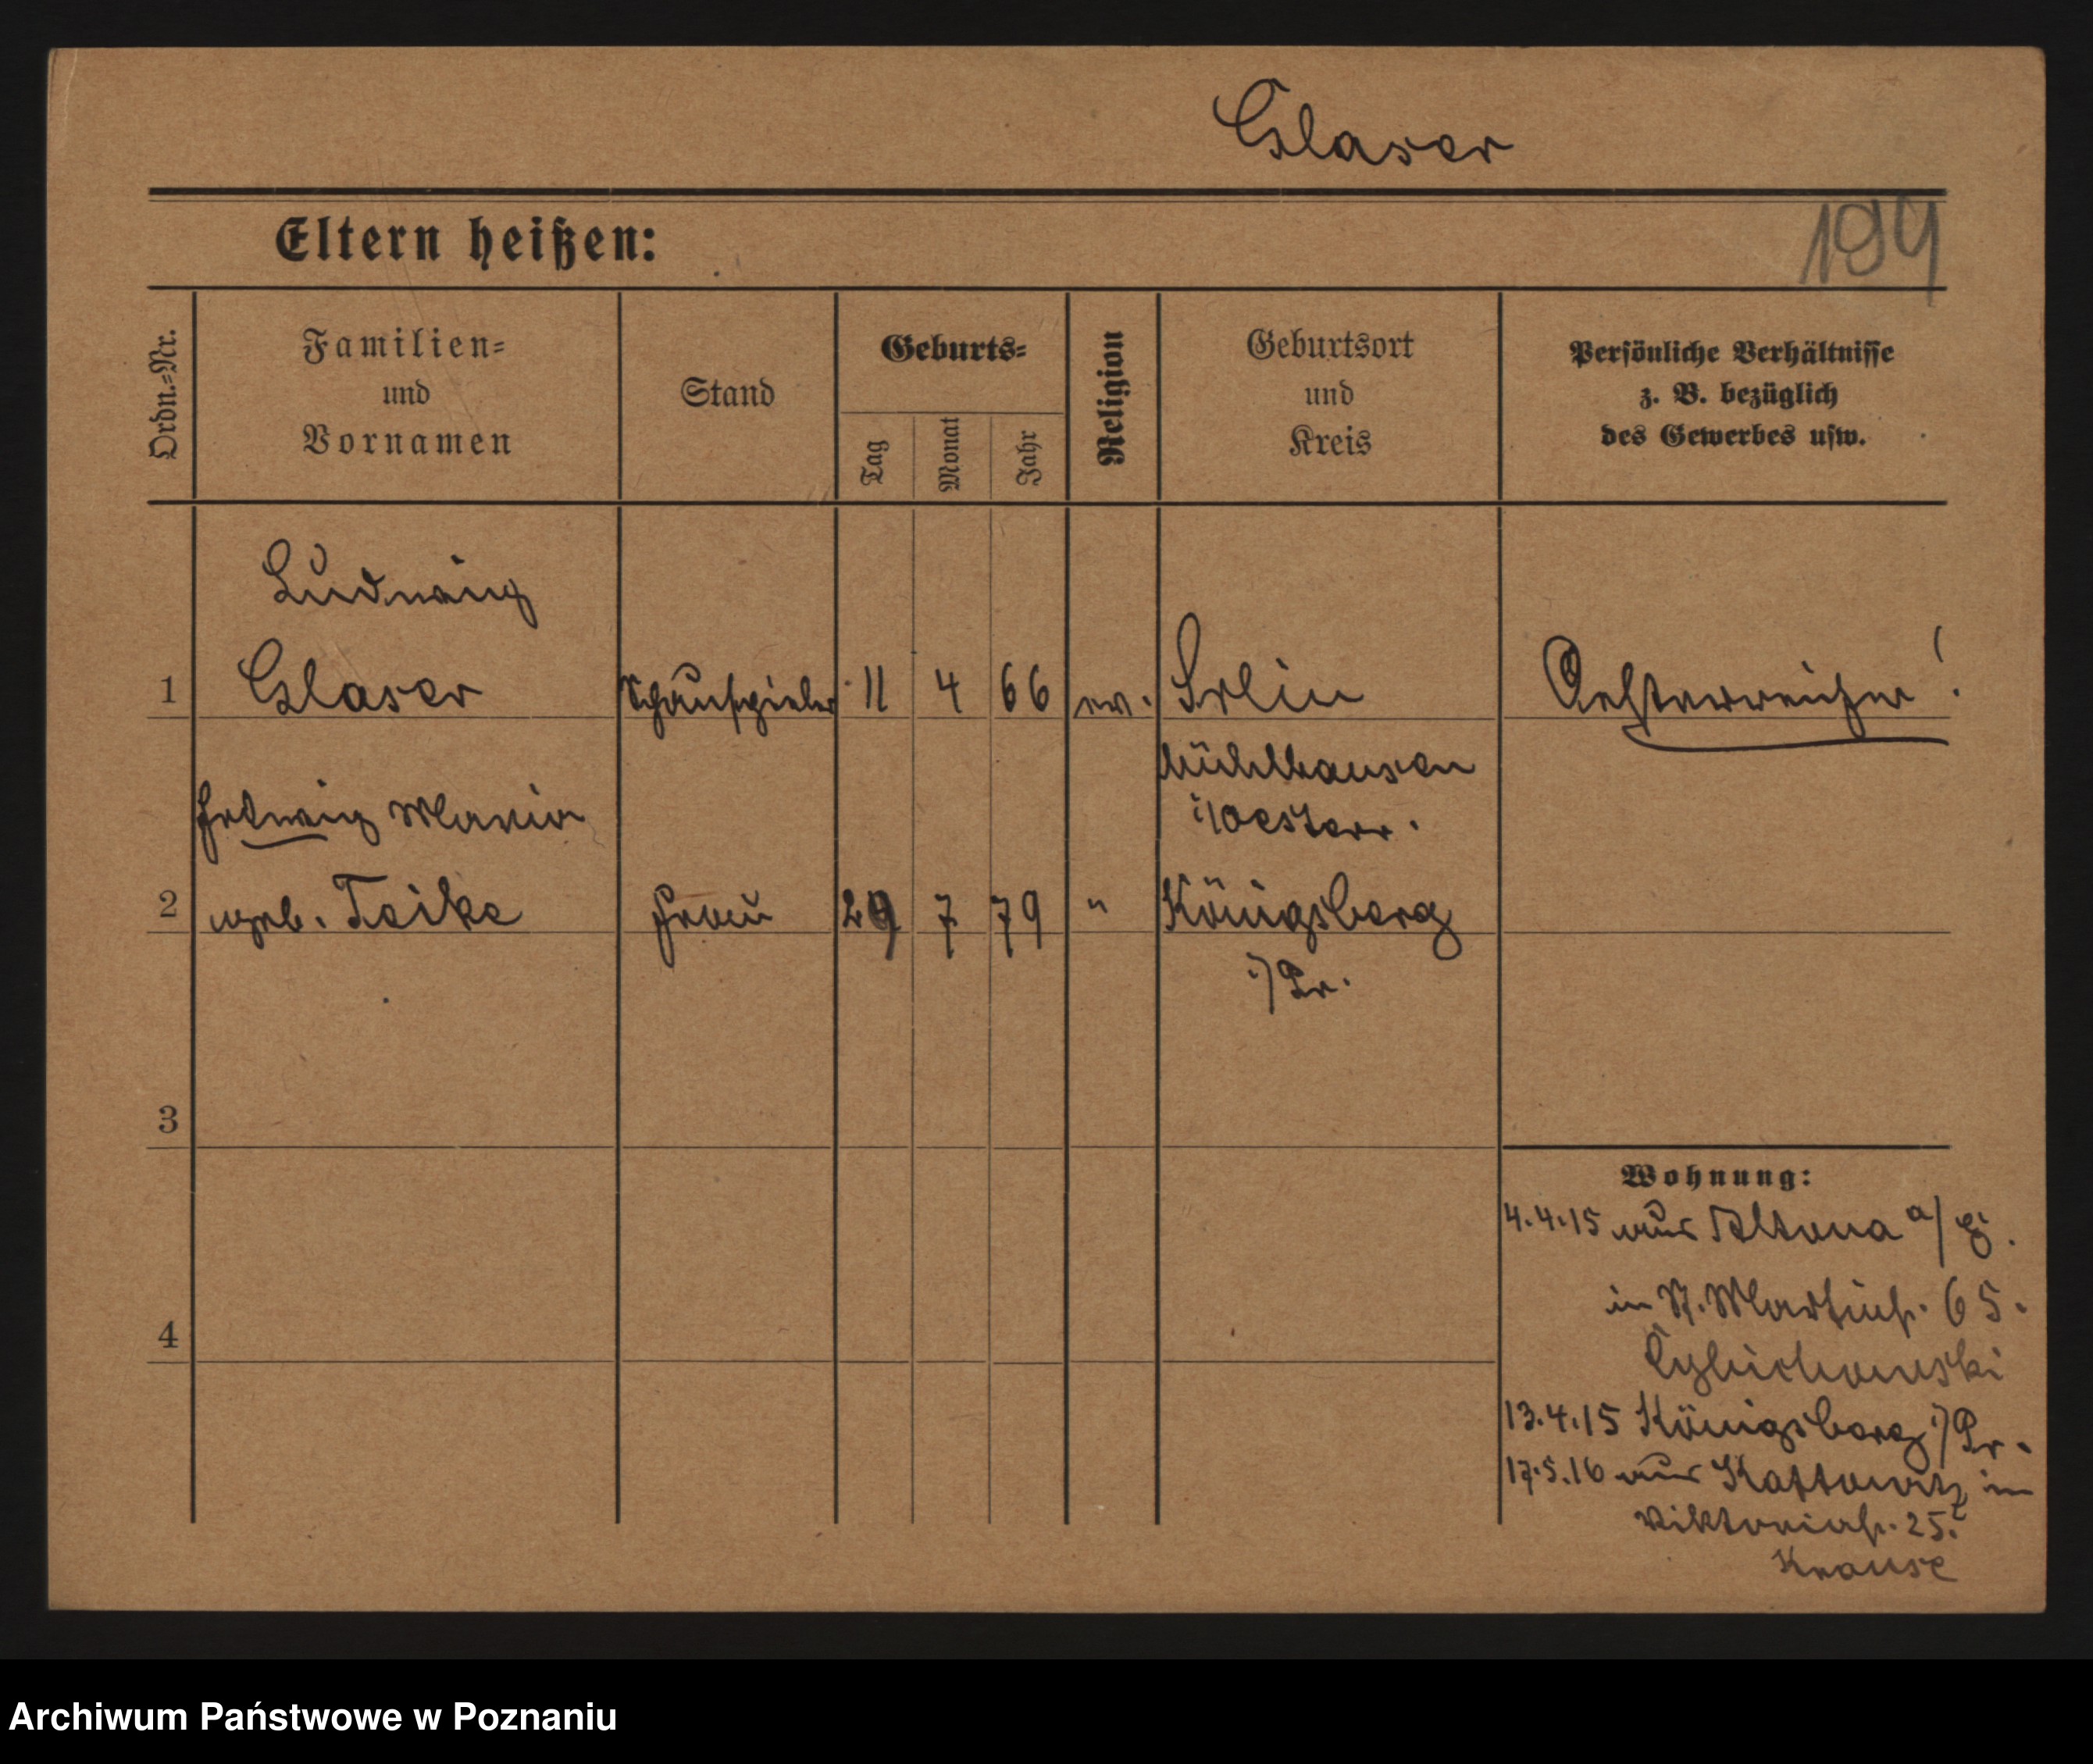 Glaser
Eltern heißen:
199
Ordn.=Nr.
Familien=
und
Vornamen
Stand
Geburts=
Tag
Monat
Jahr
Religion
Geburtsort
und
Kreis
Persönliche Verhältnisse
z. B. bezüglich
des Gewerbes usw.
Ludwig
1 Glaser Schauspieler 11 4 66 ev. Oesterreicher!
Mühlhausen
i/Oesterr.
Hedwig Maria
2 geb. Teike Frau 29 7 79 " Königsberg
i/Pr.
3
4
Wohnung:
4.4.15 aus Altona a/E.
in St. Martinstr. 65.
13.4.15 Königsberg i/Pr.
17.5.16 aus Kattowitz in
Viktoriastr. 25.
Krause
Archiwum Państwowe w Poznaniu